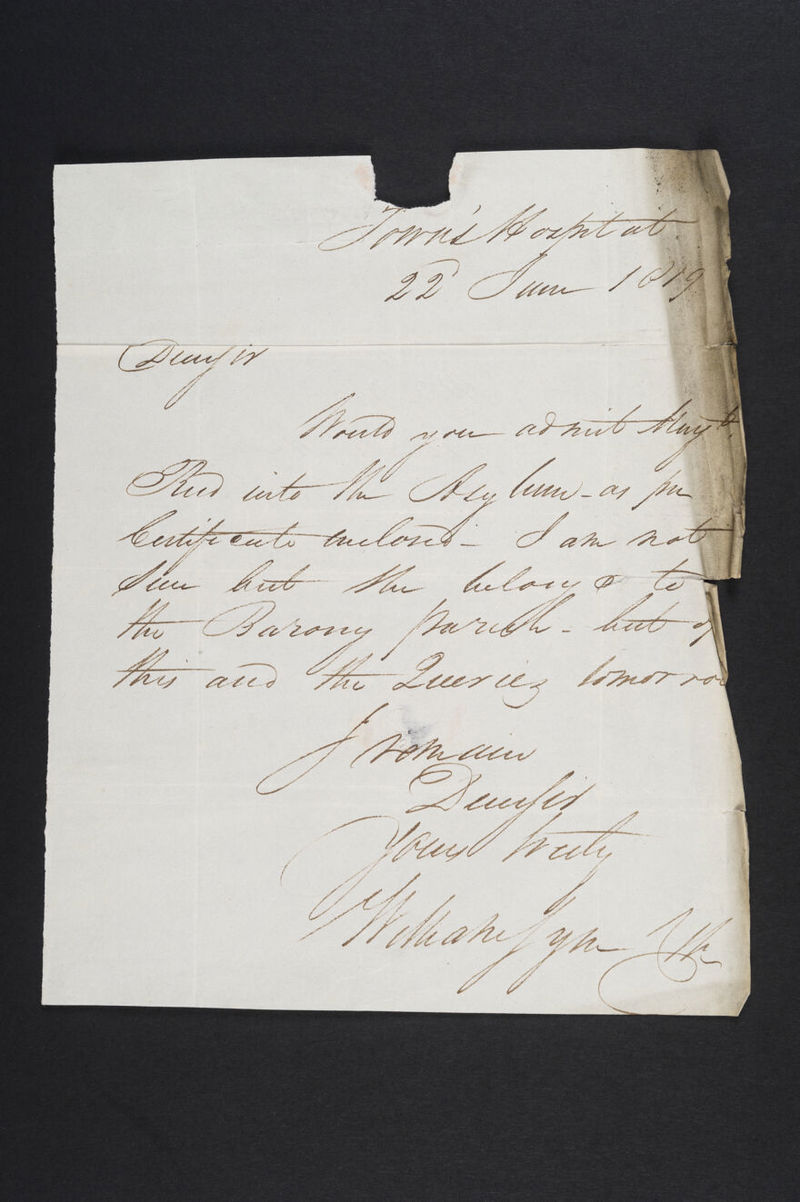 Town's Hospital
22d June 1819
Dear Sir
Would you admit Mary
Reid into the Asylum - as per
Certificate enclosed - I am not
Sure but she belongs to
the Barony parish - but of
this and the Queries tomorrow
I remain
Dear Sir
Yours truly
William